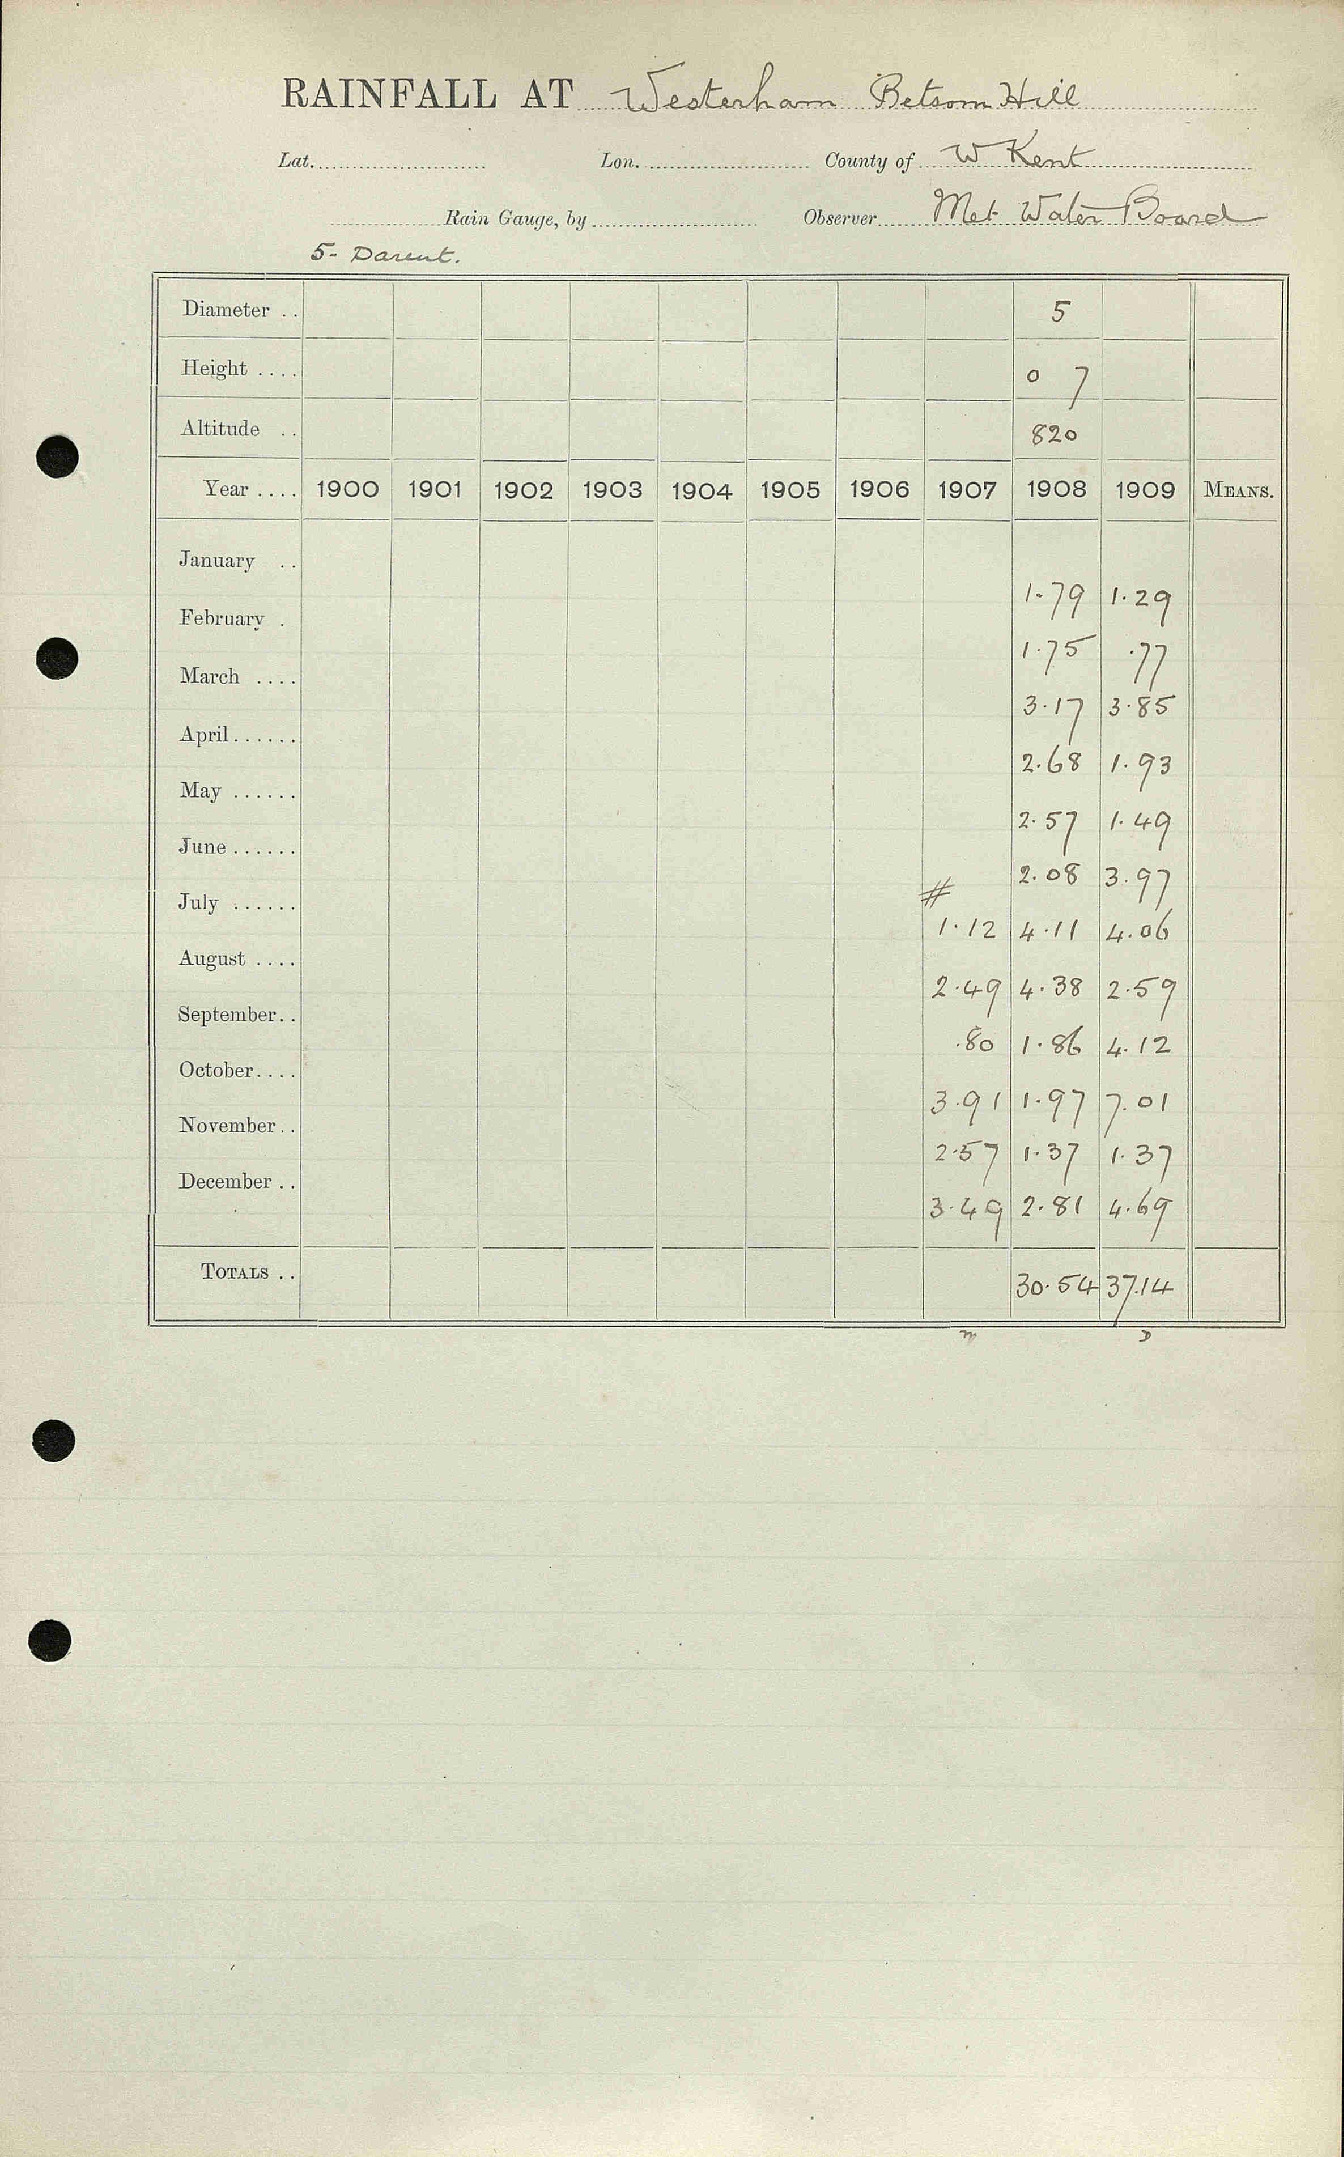 RAINFALL AT Westerham Betsom Hill
Lat. Lon. County of W Kent
Rain Gauge, by Observer Met Water Board
5- Darent.
Diameter .. 5
Height .... 0 7
Altitude .. 820
Year .... 1900 1901 1902 1903 1904 1905 1906 1907 1908 1909 MEANS.
January ..
1.79 1.29
February .
1.75 .77
March ....
3.17 3.85
April......
2.68 1.93
May ......
2.57 1.49
June......
# 2.08 3.97
July ......
1.12 4.11 4.06
August ....
2.49 4.38 2.59
September..
.80 1.86 4.12
October....
3.91 1.97 7.01
November..
2.57 1.37 1.37
December ..
3.49 2.81 4.69
TOTALS .. 30.54 37.14
m D